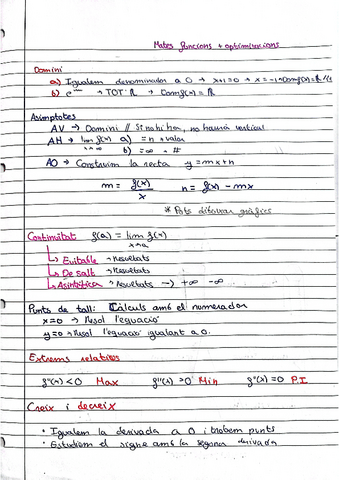 Mates funcions + optimitzacions
Domini
a) Igualem denominador a 0 → x+1=0 → x=-1 → Domf(x)=ℝ/
b) e → TOT ℝ → Domf(x)=ℝ
Asímptotes
AV → Domini // Si no hi ha, no haurà vertical
AH → lim f(x) a) = n → valor
x→∞ b) = ∞ → ∄
AO → Construim la recta y=mx+n
m = f(x)/x n = f(x) - mx
* Pots dibuixar gràfics
Continuïtat f(a) = lim f(x)
x→a
↳ Evitable → resultats
↳ De salt → Resultats
↳ Asimptòtica → Resultats → +∞ -∞
Punts de tall: Càlculs amb el numerador
x=0 → Resol l'equació
y=0 → Resol l'equació igualant a 0.
Extrems relatius
f''(x)<0 Max f''(x)>0 Min f''(x)=0 P.I
Creix i decreix
• Igualem la derivada a 0 i trobem punts
• Estudiem el signe amb la segona derivada